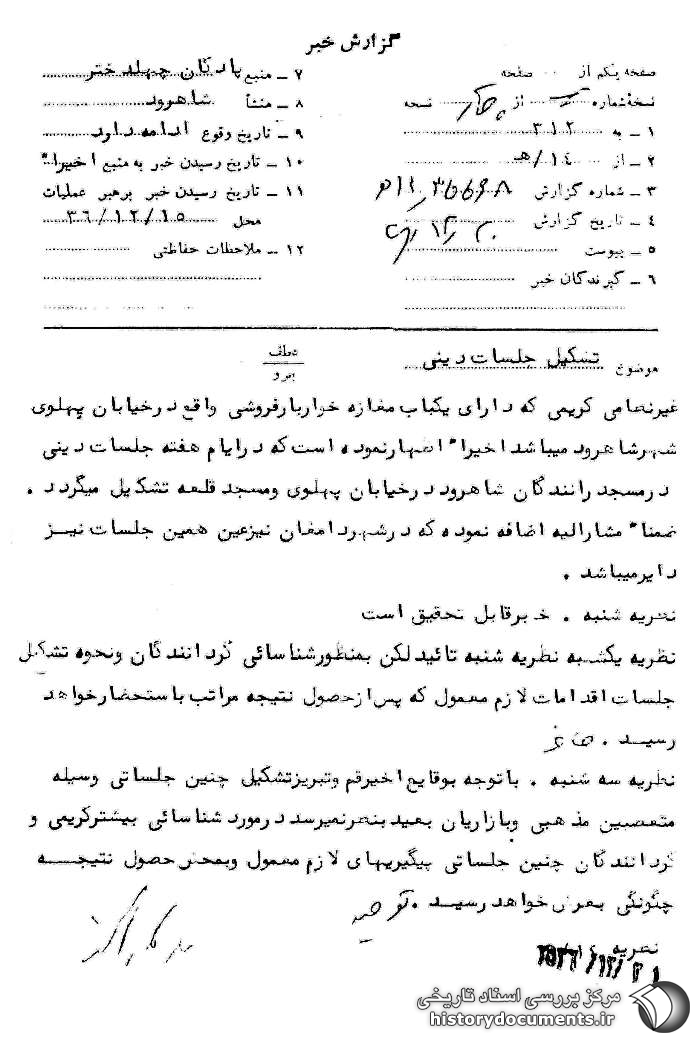 گزارش خبر
صفحه یکم از ۰۰ صفحه
نسخهٔ شماره از چهار نسخه
۱ ــ به ۳۱۲
۲ ــ از ۱۴/هـ
۳ ــ شماره گزارش
۴ ــ تاریخ گزارش
۵ ــ پیوست
۶ ــ گیرندگان خبر
۷ ــ منبع پادگان چهلدختر
۸ ــ منشأ شاهرود
۹ ــ تاریخ وقوع ادامه دارد
۱۰ ــ تاریخ رسیدن خبر به منبع اخیراً
۱۱ ــ تاریخ رسیدن خبر برهبر عملیات
محل ۳۶/۱۲/۱۵
۱۲ ــ ملاحظات حفاظتی
موضوع تشکیل جلسات دینی
عطف
پیرو
غیرنظامی کریمی که دارای یکباب مغازه خواربارفروشی واقع درخیابان پهلوی
شهرشاهرود میباشد اخیراً اظهارنموده است که درایام هفته جلسات دینی
درمسجد رانندگان شاهرود درخیابان پهلوی ومسجد قلعه تشکیل میگردد .
ضمناً مشارالیه اضافه نموده که درشهردامغان نیزعین همین جلسات نیــز
دایرمیباشد .
نظریه شنبه . خبرقابل تحقیق است
نظریه یکشنبه نظریه شنبه تائید لکن بمنظورشناسائی گردانندگان ونحوه تشکیل
جلسات اقدامات لازم معمول که پس ازحصول نتیجه مراتب باستحضارخواهد
رسیــد .
نظریه سه شنبه . باتوجه بوقایع اخیرقم وتبریزتشکیل چنین جلساتی وسیله
متعصبین مذهبی وبازاریان بعید بنظرنمیرسد درمورد شناسائی بیشترکریمی و
گردانندگان چنین جلساتی پیگیریهای لازم معمول وبمحض حصول نتیجـــه
چگونگی بعرض خواهد رسیـد .
نظریه
۲۵۳۶/۱۲/۲۱
مرکز بررسی اسناد تاریخی
historydocuments.ir